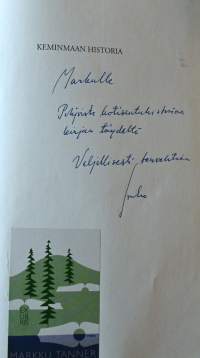 KEMINMAAN HISTORIA
Markulle
Pohjoista kotiseutuhistoriaa
kirjan täydeltä
Veljellisesti tervehtien
MARKKU TANNER